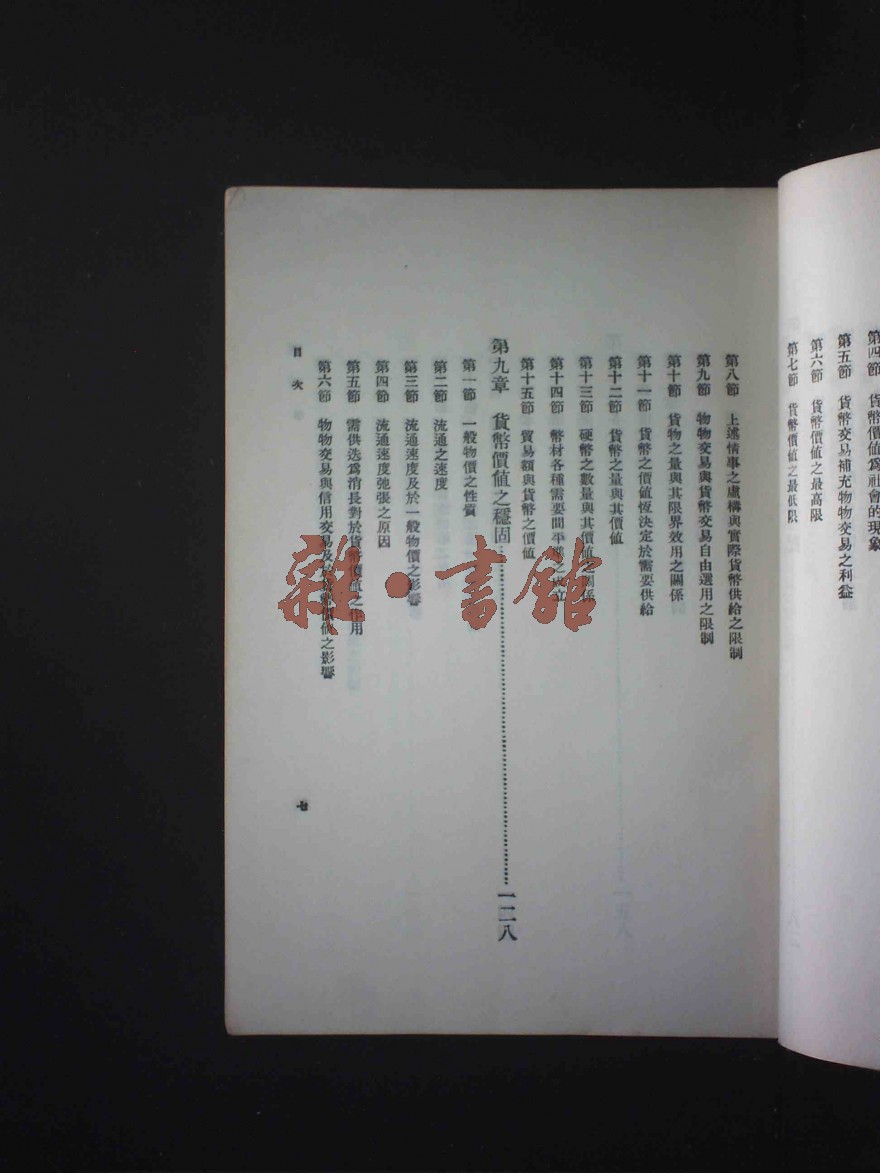 第四節　貨幣價値爲社會的現象
第五節　貨幣交易補充物物交易之利益
第六節　貨幣價値之最高限
第七節　貨幣價値之最低限
第八節　上述情事之虛構與實際貨幣供給之限制
第九節　物物交易與貨幣交易自由選用之限制
第十節　貨物之量與其限界效用之關係
第十一節　貨幣之價値恆決定於需要供給
第十二節　貨幣之量與其價値
第十三節　硬幣之數量與其價値之關係
第十四節　幣材各種需要間平衡之成立
第十五節　貿易額與貨幣之價値
第九章　貨幣價値之穩固……一二八
第一節　一般物價之性質
第二節　流通之速度
第三節　流通速度及於一般物價之影響
第四節　流通速度弛張之原因
第五節　需供迭爲消長對於貨幣價値之作用
第六節　物物交易與信用交易及於貨幣價値之影響
目次
七
雜·書館